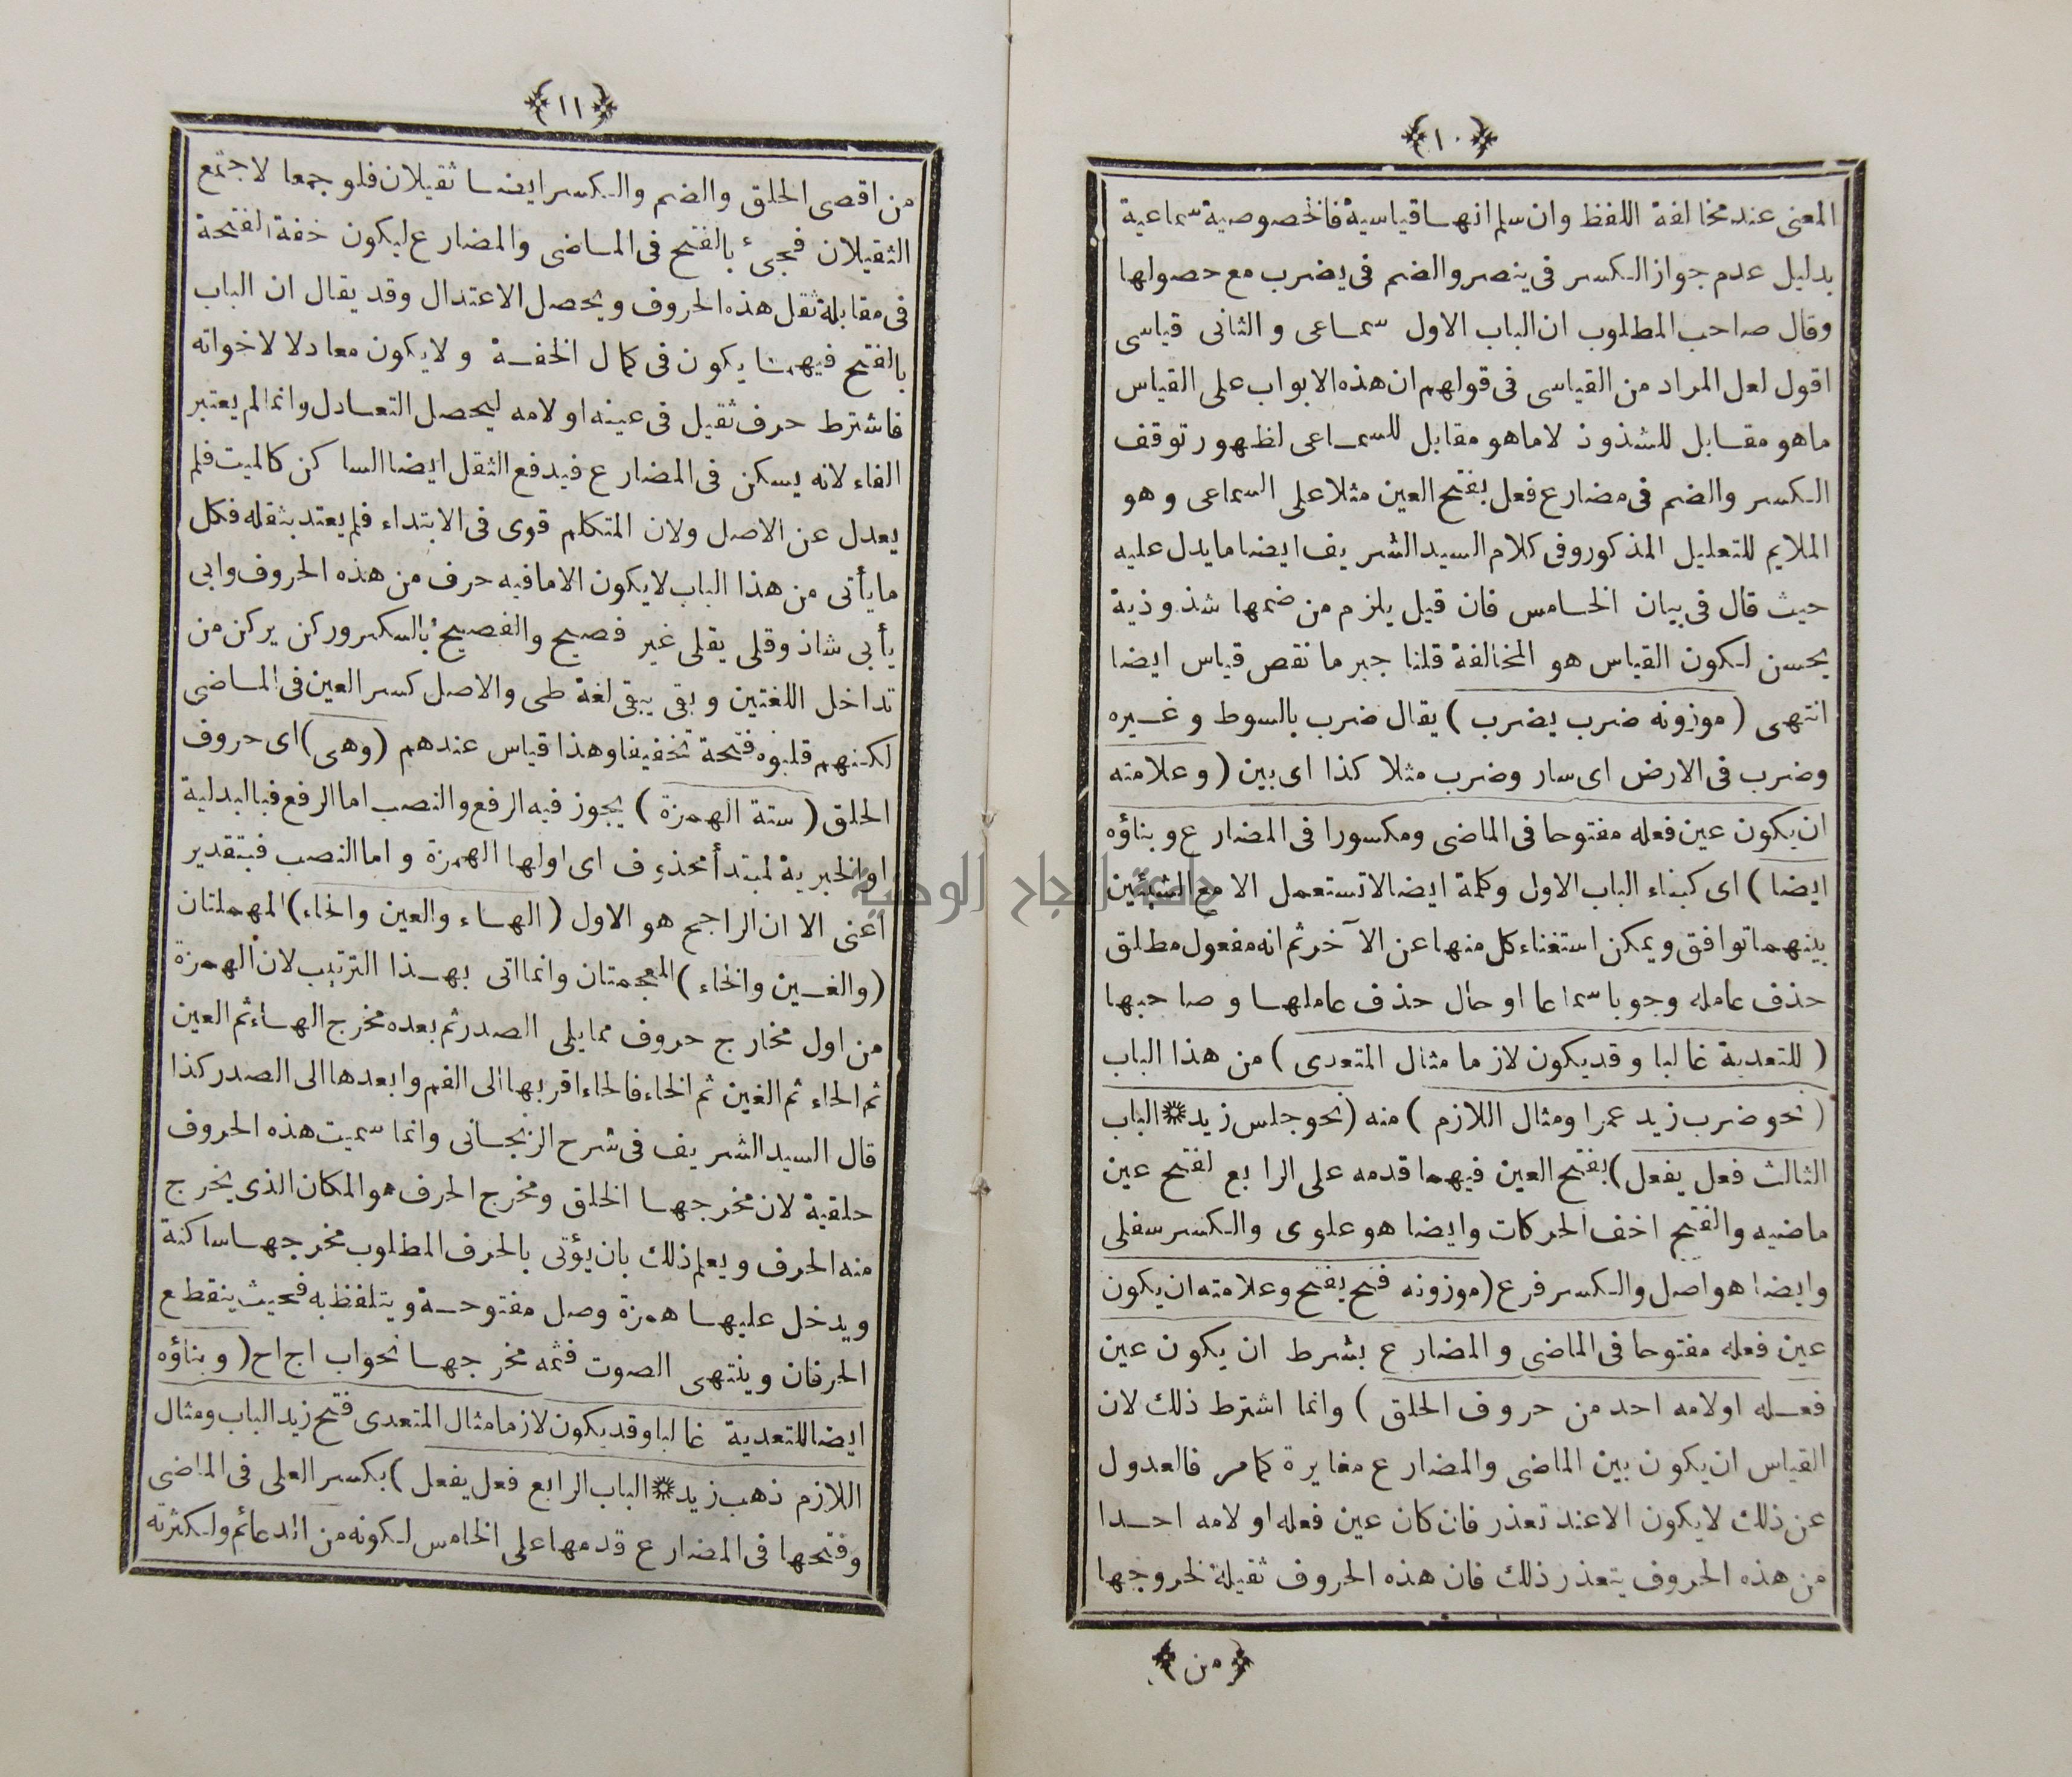 ﴿١٠﴾
المعنى عند مخالفة اللفظ وان سلم انهاقياسية فالخصوصية سماعية
بدليل عدم جواز الكسر فى ينصر والضم فى يضرب مع حصولها
وقال صاحب المطلوب ان الباب الاول سماعى والثانى قياسى
اقول لعل المراد من القياسى فى قولهم ان هذه الابواب على القياس
ماهو مقابل للشذوذ لاماهو مقابل للسماعى لظهور توقف
الكسر والضم فى مضارع فعل بفتح العين مثلا على السماعى وهو
الملايم للتعليل المذكور وفى كلام السيد الشريف ايضا مايدل عليه
حيث قال فى بيان الخامس فان قيل يلزم من ضمها شذوذية
يحسن لكون القياس هو المخالفة قلنا جبر ما نقص قياس ايضا
انتهى (موزونه ضرب يضرب) يقال ضرب بالسوط وغيره
وضرب فى الارض اى سار وضرب مثلا كذا اى بين (وعلامته
ان يكون عين فعله مفتوحا فى الماضى ومكسورا فى المضارع وبناؤه
ايضا) اى كبناء الباب الاول وكلمة ايضا لاتستعمل الا مع الشيئين
بينهما توافق ويمكن استغناء كل منها عن الآخر ثم انه مفعول مطلق
حذف عامله وجوبا سماعا او حال حذف عاملها وصاحبها
(للتعدية غالبا وقديكون لازما مثال المتعدى) من هذا الباب
(نحو ضرب زيد عمرا ومثال اللازم) منه (نحو جلس زيد ۞ الباب
الثالث فعل يفعل) بفتح العين فيهما قدمه على الرابع لفتح عين
ماضيه والفتح اخف الحركات وايضا هو علوى والكسر سفلى
وايضا هو اصل والكسر فرع (موزونه فتح يفتح وعلامته ان يكون
عين فعله مفتوحا فى الماضى والمضارع بشرط ان يكون عين
فعله اولامه احد من حروف الحلق) وانما اشترط ذلك لان
القياس ان يكون بين الماضى والمضارع مغايرة كمامر فالعدول
عن ذلك لايكون الاعند تعذر فان كان عين فعله او لامه احدا
من هذه الحروف يتعذر ذلك فان هذه الحروف ثقيلة لخروجها
﴿من﴾
﴿١١﴾
من اقصى الحلق والضم والكسر ايضا ثقيلان فلو جمعا لاجتمع
الثقيلان فجىء بالفتح فى الماضى والمضارع ليكون خفة الفتحة
فى مقابلة ثقل هذه الحروف ويحصل الاعتدال وقد يقال ان الباب
بالفتح فيهما يكون فى كمال الخفة ولايكون معادلا لاخواته
فاشترط حرف ثقيل فى عينه اولامه ليحصل التعادل وانما لم يعتبر
الفاء لانه يسكن فى المضارع فيدفع الثقل ايضا الساكن كالميت فلم
يعدل عن الاصل ولان المتكلم قوى فى الابتداء فلم يعتد بثقله فكل
مايأتى من هذا الباب لايكون الا مافيه حرف من هذه الحروف وابى
يأبى شاذ وقلى يقلى غير فصيح والفصيح بالكسر وركن يركن من
تداخل اللغتين وبقى يبقى لغة طى والاصل كسر العين فى الماضى
لكنهم قلبوه فتحة تخفيفا وهذا قياس عندهم (وهى) اى حروف
الحلق (ستة الهمزة) يجوز فيه الرفع والنصب اما الرفع فبالبدلية
اوالخبرية لمبتدأ محذوف اى اولها الهمزة واما النصب فبتقدير
اعنى الا ان الراجح هو الاول (الهاء والعين والحاء) المهملتان
(والغين والخاء) المعجمتان وانما اتى بهذا الترتيب لان الهمزة
من اول مخارج حروف مما يلى الصدر ثم بعده مخرج الهاء ثم العين
ثم الحاء ثم الغين ثم الخاء فالخاء اقربها الى الفم وابعدها الى الصدر كذا
قال السيد الشريف فى شرح الزنجانى وانما سميت هذه الحروف
حلقية لان مخرجها الحلق ومخرج الحرف هو المكان الذى يخرج
منه الحرف ويعلم ذلك بان يؤتى بالحرف المطلوب مخرجها ساكنة
ويدخل عليها همزة وصل مفتوحة ويتلفظ به فحيث ينقطع
الحرفان وينتهى الصوت فثمه مخرجها نحواب اج اح (وبناؤه
ايضا للتعدية غالبا وقديكون لازما مثال المتعدى فتح زيد الباب ومثال
اللازم ذهب زيد ۞ الباب الرابع فعل يفعل) بكسر العلى فى الماضى
وفتحها فى المضارع قدمها على الخامس لكونه من الدعائم ولكثرته
جامعة النجاح الوطنية